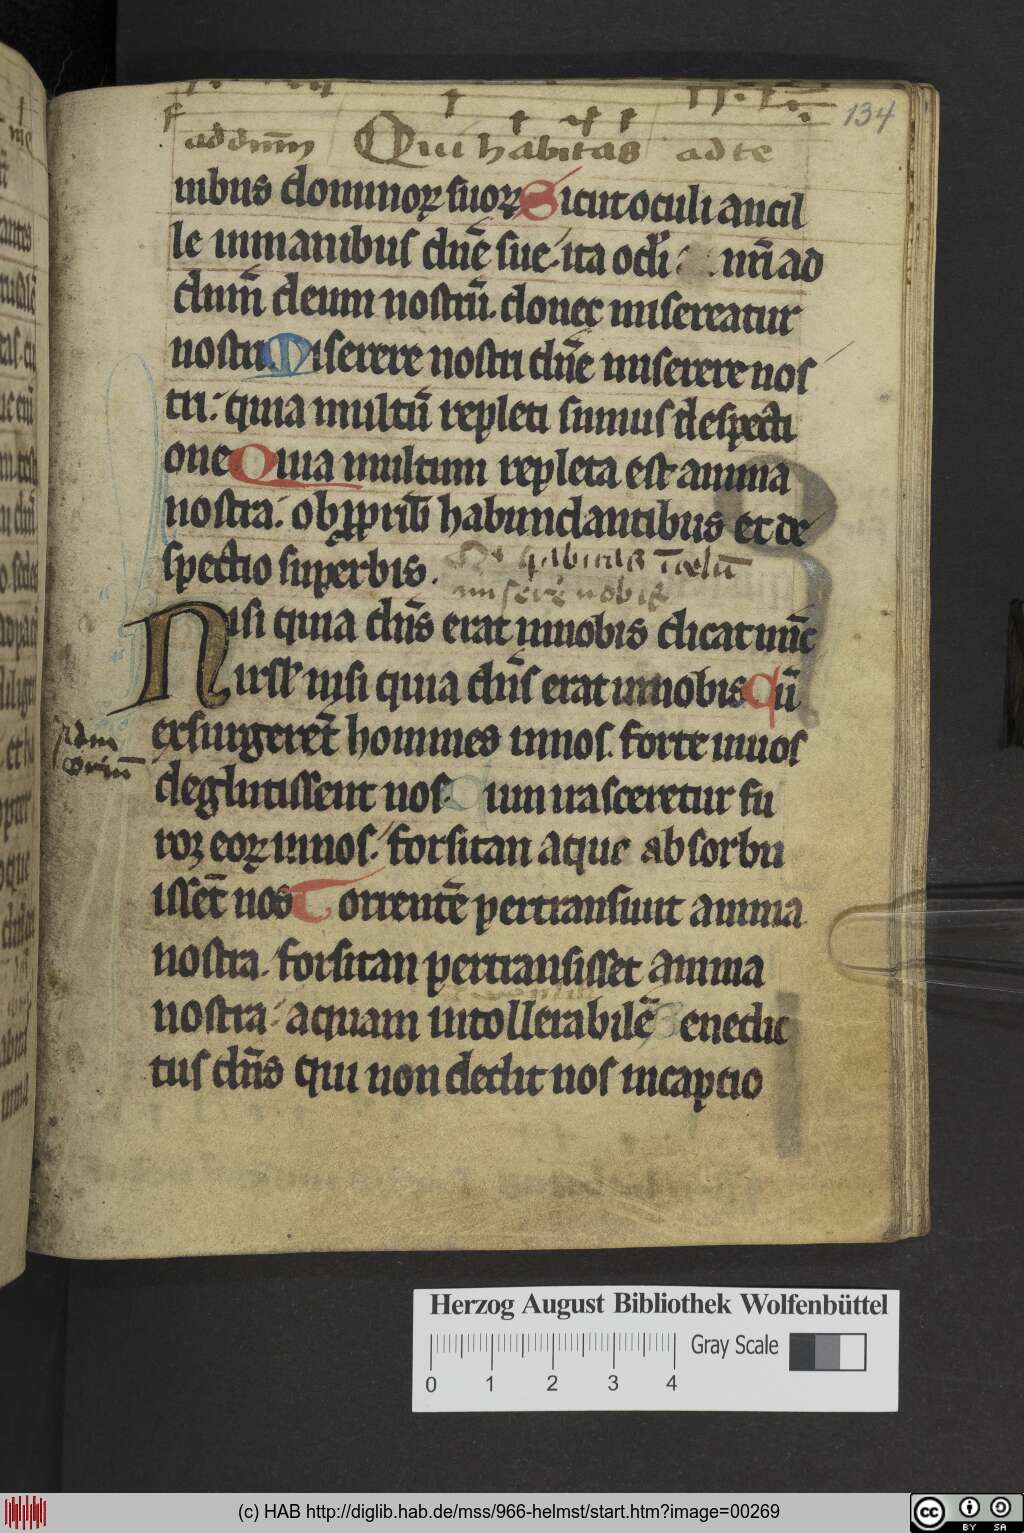 134
ad dnm̄ Qui habitas ad te
nibus dominoꝝ suoꝝ Sicut oculi ancil
le in manibus dn̄e sue. ita ocli nr̄i ad
dnm̄ deum nostrū. donec misereatur
nostri Miserere nostri dn̄e miserere nos
tri: quia multū repleti sumus despecti
one Quia multum repleta est anima
nostra: obꝓpriū habundantibus et de
spectio superbis.
habitas ī celū
miserē nobis
Nisi quia dn̄s erat in nobis dicat nūc
isrl' nisi quia dn̄s erat in nobis Cū
exsurgerēt homines in nos. forte vivos
deglutissent nos. Cum irasceretur fu
ror eoꝝ in nos. forsitan aque absorbu
issēt nos Torrentē pertransivit anima
nostra. forsitan pertransisset anima
nostra aquam intollerabilē Benedic
tus dn̄s qui non dedit nos in captio
Herzog August Bibliothek Wolfenbüttel
Gray Scale
0 1 2 3 4
(c) HAB http://diglib.hab.de/mss/966-helmst/start.htm?image=00269
cc BY SA